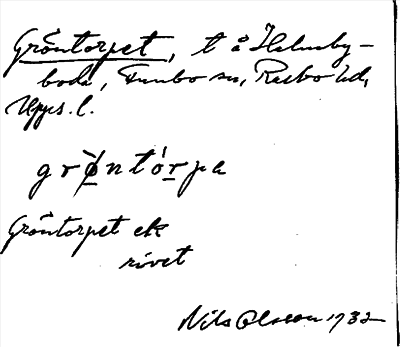 Gröntorpet, t å Holmby-
boda, Funbo sn, Rasbo hd,
Upps. l.
grø̀ntórpa
Gröntorpet ek
rivet
Nils Olsson 1932